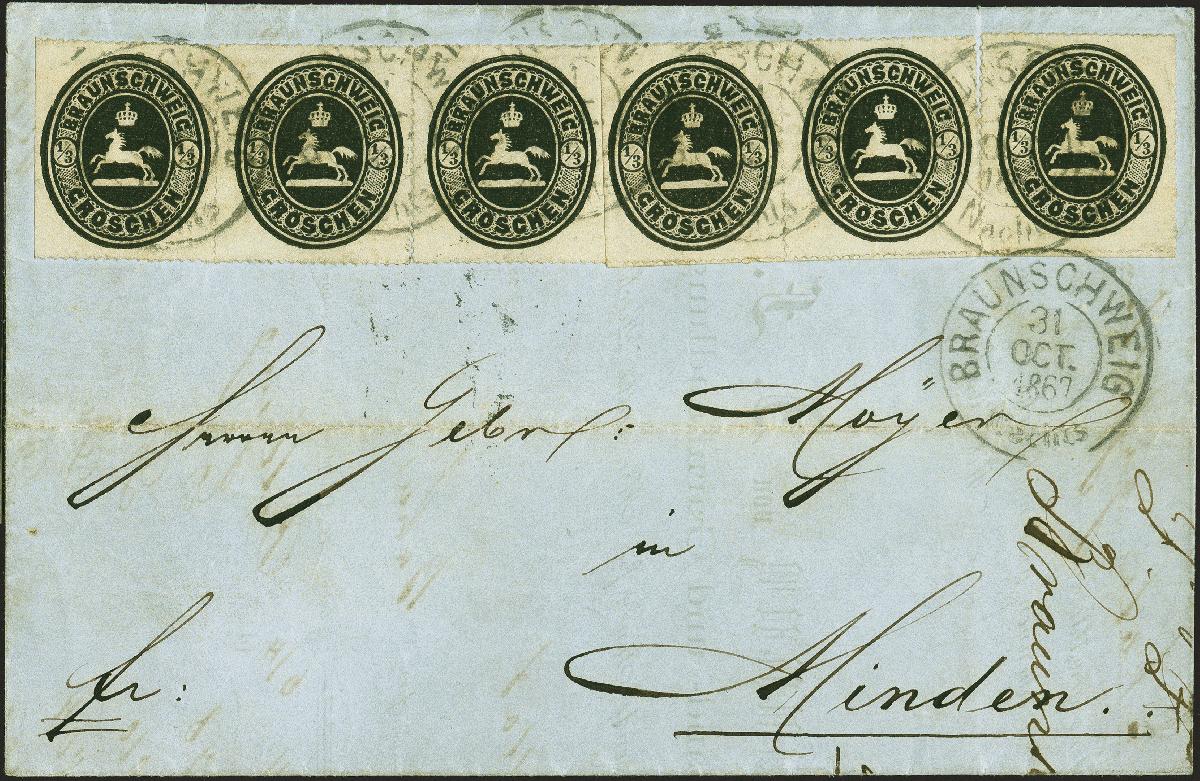 BRAUNSCHWEIG 1/3 1/3 GROSCHEN
BRAUNSCHWEIG 1/3 1/3 GROSCHEN
BRAUNSCHWEIG 1/3 1/3 GROSCHEN
BRAUNSCHWEIG 1/3 1/3 GROSCHEN
BRAUNSCHWEIG 1/3 1/3 GROSCHEN
BRAUNSCHWEIG 1/3 1/3 GROSCHEN
BRAUNSCHWEIG
31
OCT.
1867
Nachts
Herren Gebr: Moÿer
in
fr:
Minden.